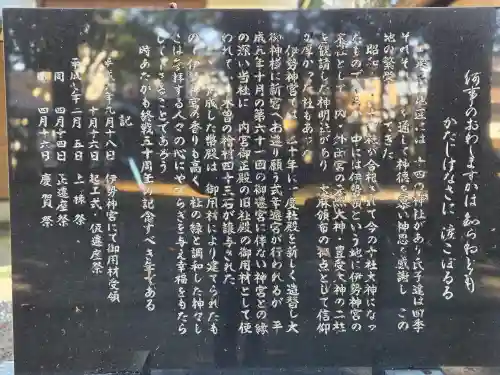 何事のおわしますかは知らねども
かたじけなさに涙こぼるる
地区には 十四の神社があり氏子達は四季
それぞれの を通して神徳を慕い神恩に感謝し この
地の繁栄 てきた
昭和 十 社が合祀されて今の 社大神になっ
たものであるが 中には伊勢 という地に伊勢神宮の
として 内 外両宮の天照大神 豊受大神の二社
を勧請した神明社があり 大麻頒布の拠点として信仰
の厚かった社もあった
伊勢神宮では 二十年に一度社殿を新しく造替し大
御神様に新宮へお遷り願う式年遷宮が行われるが 平
成五年十月の第六十一回の御遷宮に伴ない神宮との縁
の深い当社に 内宮御正殿の旧社殿の御用材として使
われていた木曽の桧材四十三石が譲与された
成した幣殿は 御用材により建てられたも
ので伊勢神宮の香りも高く 社の緑と調和した神々し
さは参拝する人々の心にやすらぎを与え幸福をもたら
してくださることであろう
時あたかも終戦五十周年の記念すべき年である
記
平成 年 月十八日 伊勢神宮にて御用材受領
十月十六日 起工式・仮遷座祭
平成 年二月 五日 上棟祭
同 四月十四日 正遷座祭
四月十六日 慶賀祭